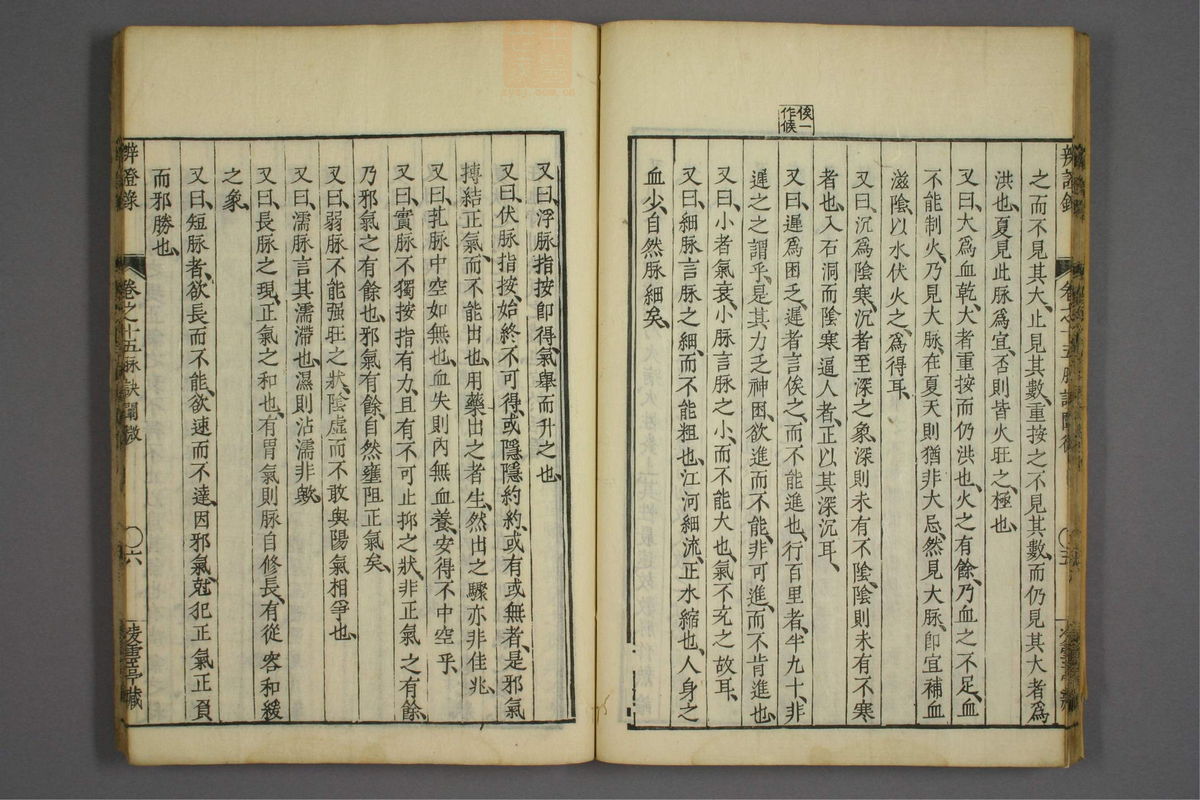 俟一
作候
之而不見其大、止見其數、重按之不見其數、而仍見其大者爲
洪也、夏見此脉爲宜、否則皆火旺之、極也、
又曰、大爲血乾、大者重按而仍洪也、火之有餘、乃血之不足、血
不能制火、乃見大脉、在夏天則猶非大忌、然見大脉、卽宜補血
滋陰、以水伏火之、爲得耳、
又曰、沉爲陰寒、沉者至深之象、深則未有不陰、陰則未有不寒
者也、入石洞而陰寒逼人者、正以其深沉耳、
又曰、遲爲困乏、遲者言俟之、而不能進也、行百里者、半九十、非
遲之之謂乎、是其力乏神困、欲進而不能、非可進、而不肯進也、
又曰、小者氣衰、小脉言脉之小、而不能大也、氣不充之故耳、
又曰、細脉言脉之細、而不能粗也、江河細流、正水縮也、人身之
血少、自然脉細矣、
又曰、浮脉指按卽得、氣舉而升之也、
又曰、伏脉指按、始終不可得、或隱隱約約、或有或無者、是邪氣
搏結正氣、而不能出也、用藥出之者生、然出之驟亦非佳兆、
又曰、芤脉中空如無也、血失則內無血養、安得不中空乎、
又曰、實脉不獨按指有力、且有不可止抑之狀、非正氣之有餘、
乃邪氣之有餘也、邪氣有餘、自然壅阻正氣矣、
又曰、弱脉不能强旺之狀、陰虛而不敢與陽氣相爭也、
又曰、濡脉言其濡滯也、濕則沾濡非歟、
又曰、長脉之現、正氣之和也、有胃氣則脉自修長、有從容和緩
之象、
又曰、短脉者、欲長而不能、欲速而不達、因邪氣尅犯正氣、正負
而邪勝也、
辨證錄
卷之十五脉訣闡微
六